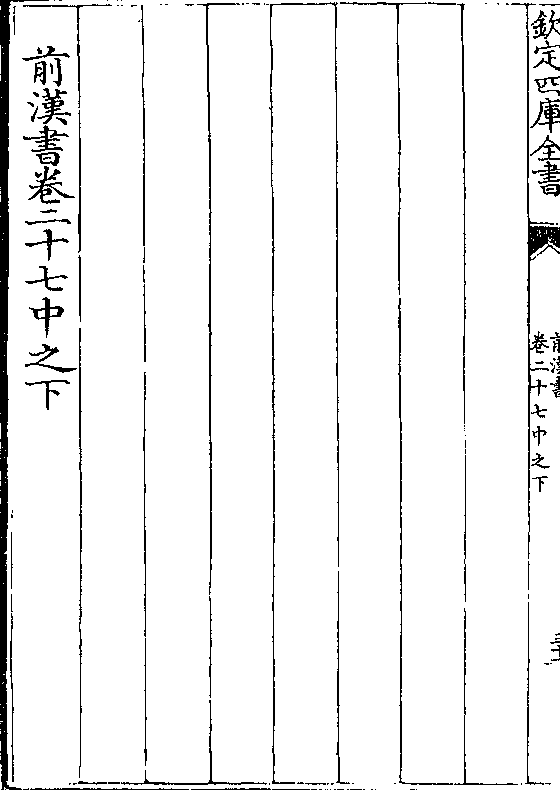 欽定四庫全書
前漢書
卷二十七中之下
前漢書卷二十七中之下